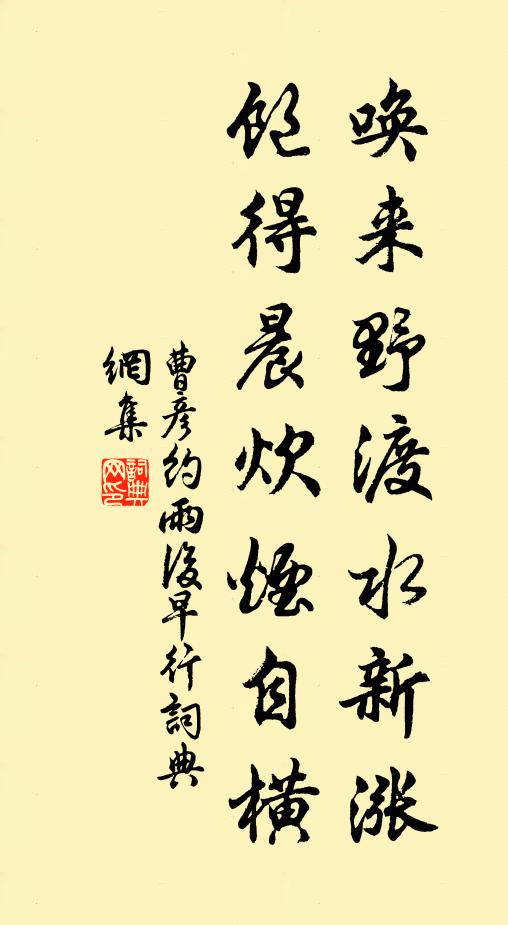 唤来野渡水新涨
饱得晨炊烟自横
曹彦约雨后早行词典
網集
詞典网印